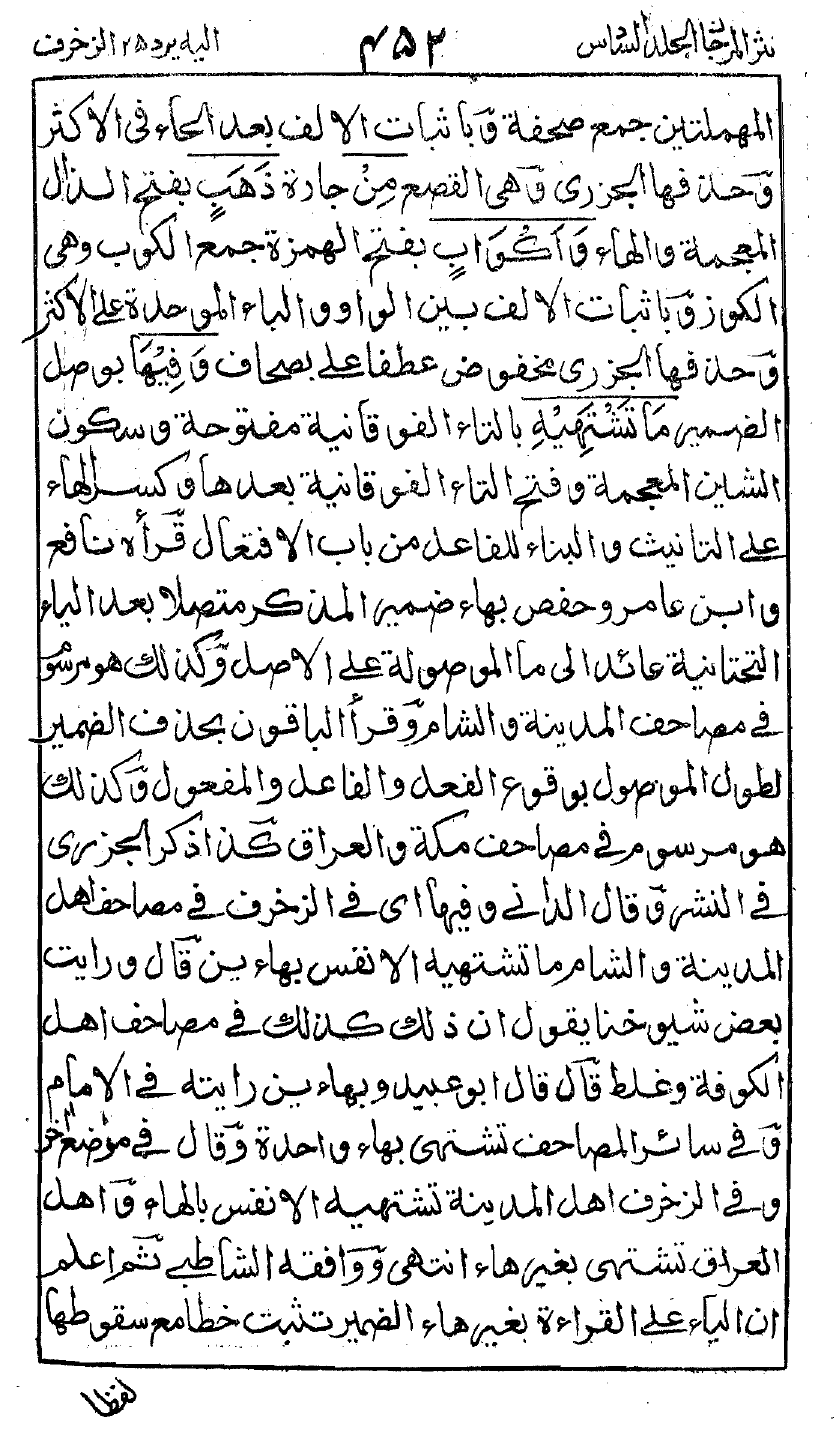 نثر المرجان المجلد السادس ٤٥٣ اليه يرد ٢٥ الزخرف
المهملتين جمع صحفة وباثبات الالف بعد الحاء فى الاكثر
وحذفها الجزرى وهى القصع مِنْ جارة ذَهَبٍ بفتح الذال
المعجمة والهاء وَاَكْوَابٍ بفتح الهمزة جمع الكوب وهى
الكوز وباثبات الالف بين الواو والباء الموحدة على الاكثر
وحذفها الجزرى مخفوض عطفا على بصحاف وَفِيْهَا بوصل
الضمير مَا تَشْتَهِيْهِ بالتاء الفوقانية مفتوحة وسكون
الشين المعجمة وفتح التاء الفوقانية بعدها وكسر الهاء
على التانيث والبناء للفاعل من باب الافتعال قرأه نافع
وابن عامر وحفص بهاء ضمير المذكر متصلا بعد الياء
التحتانية عائد الى ما الموصولة على الاصل وكذلك هو مرسوم
فے مصاحف المدينة والشام وقرأ الباقون بحذف الضمير
لطول الموصول بوقوع الفعل والفاعل والمفعول وكذلك
هو مرسوم فے مصاحف مكة والعراق كذا ذكر الجزرى
فے النشر وقال الدانے وفيها اى فے الزخرف فے مصاحف اهل
المدينة والشام ما تشتهيه الانفس بهاءين قال ورايت
بعض شيوخنا يقول ان ذلك كذلك فے مصاحف اهل
الكوفة وغلط قال قال ابو عبيد وبهاءين رايته فے الامام
وفے سائر المصاحف تشتهى بهاء واحدة وقال فے موضع اخر
وفے الزخرف اهل المدينة تشتهيه الانفس بالهاء واهل
العراق تشتهى بغير هاء انتهى ووافقه الشاطبے ثم اعلم
ان الياء على القراءة بغير هاء الضمير تثبت خطا مع سقوطها
لفظا